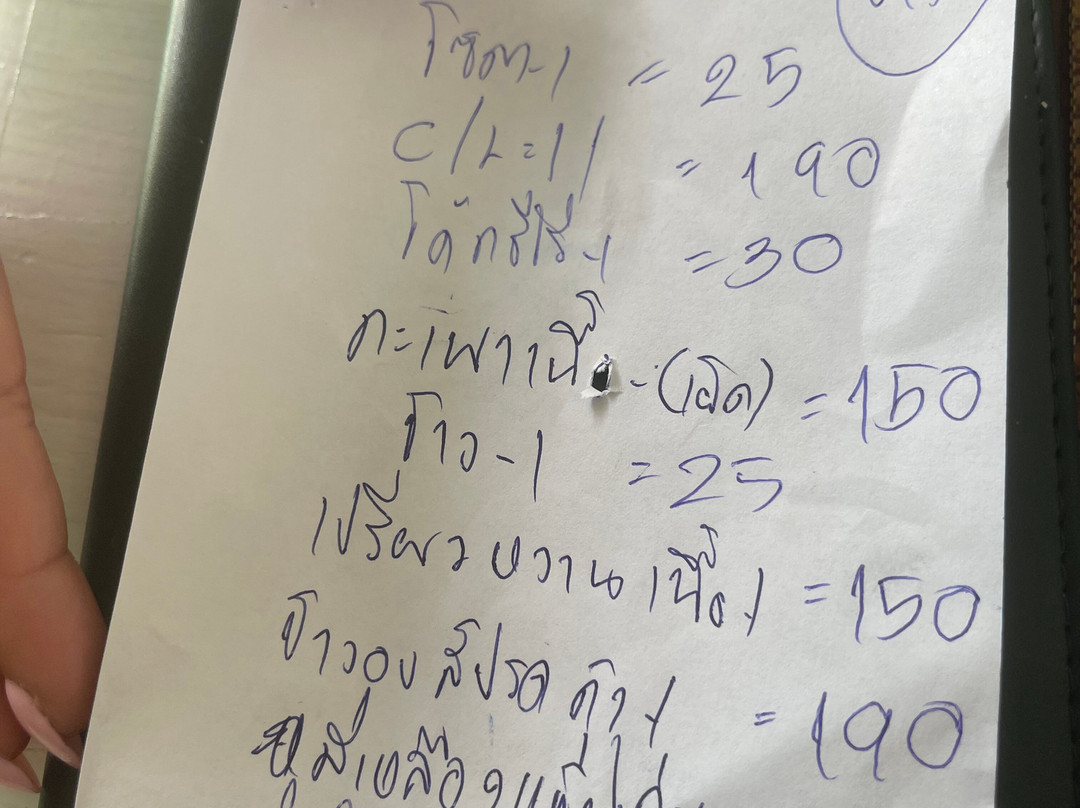 โซดา-1 = 25
C/L=11 = 190
โค้กซีโร่-1 = 30
กะเพาเนื้ -(เผ็ด) = 150
ข้าว-1 = 25
เปรี้ยวหวานเนื้อ-1 = 150
ข้าวอบสัปรดกุ้ง-1 = 190